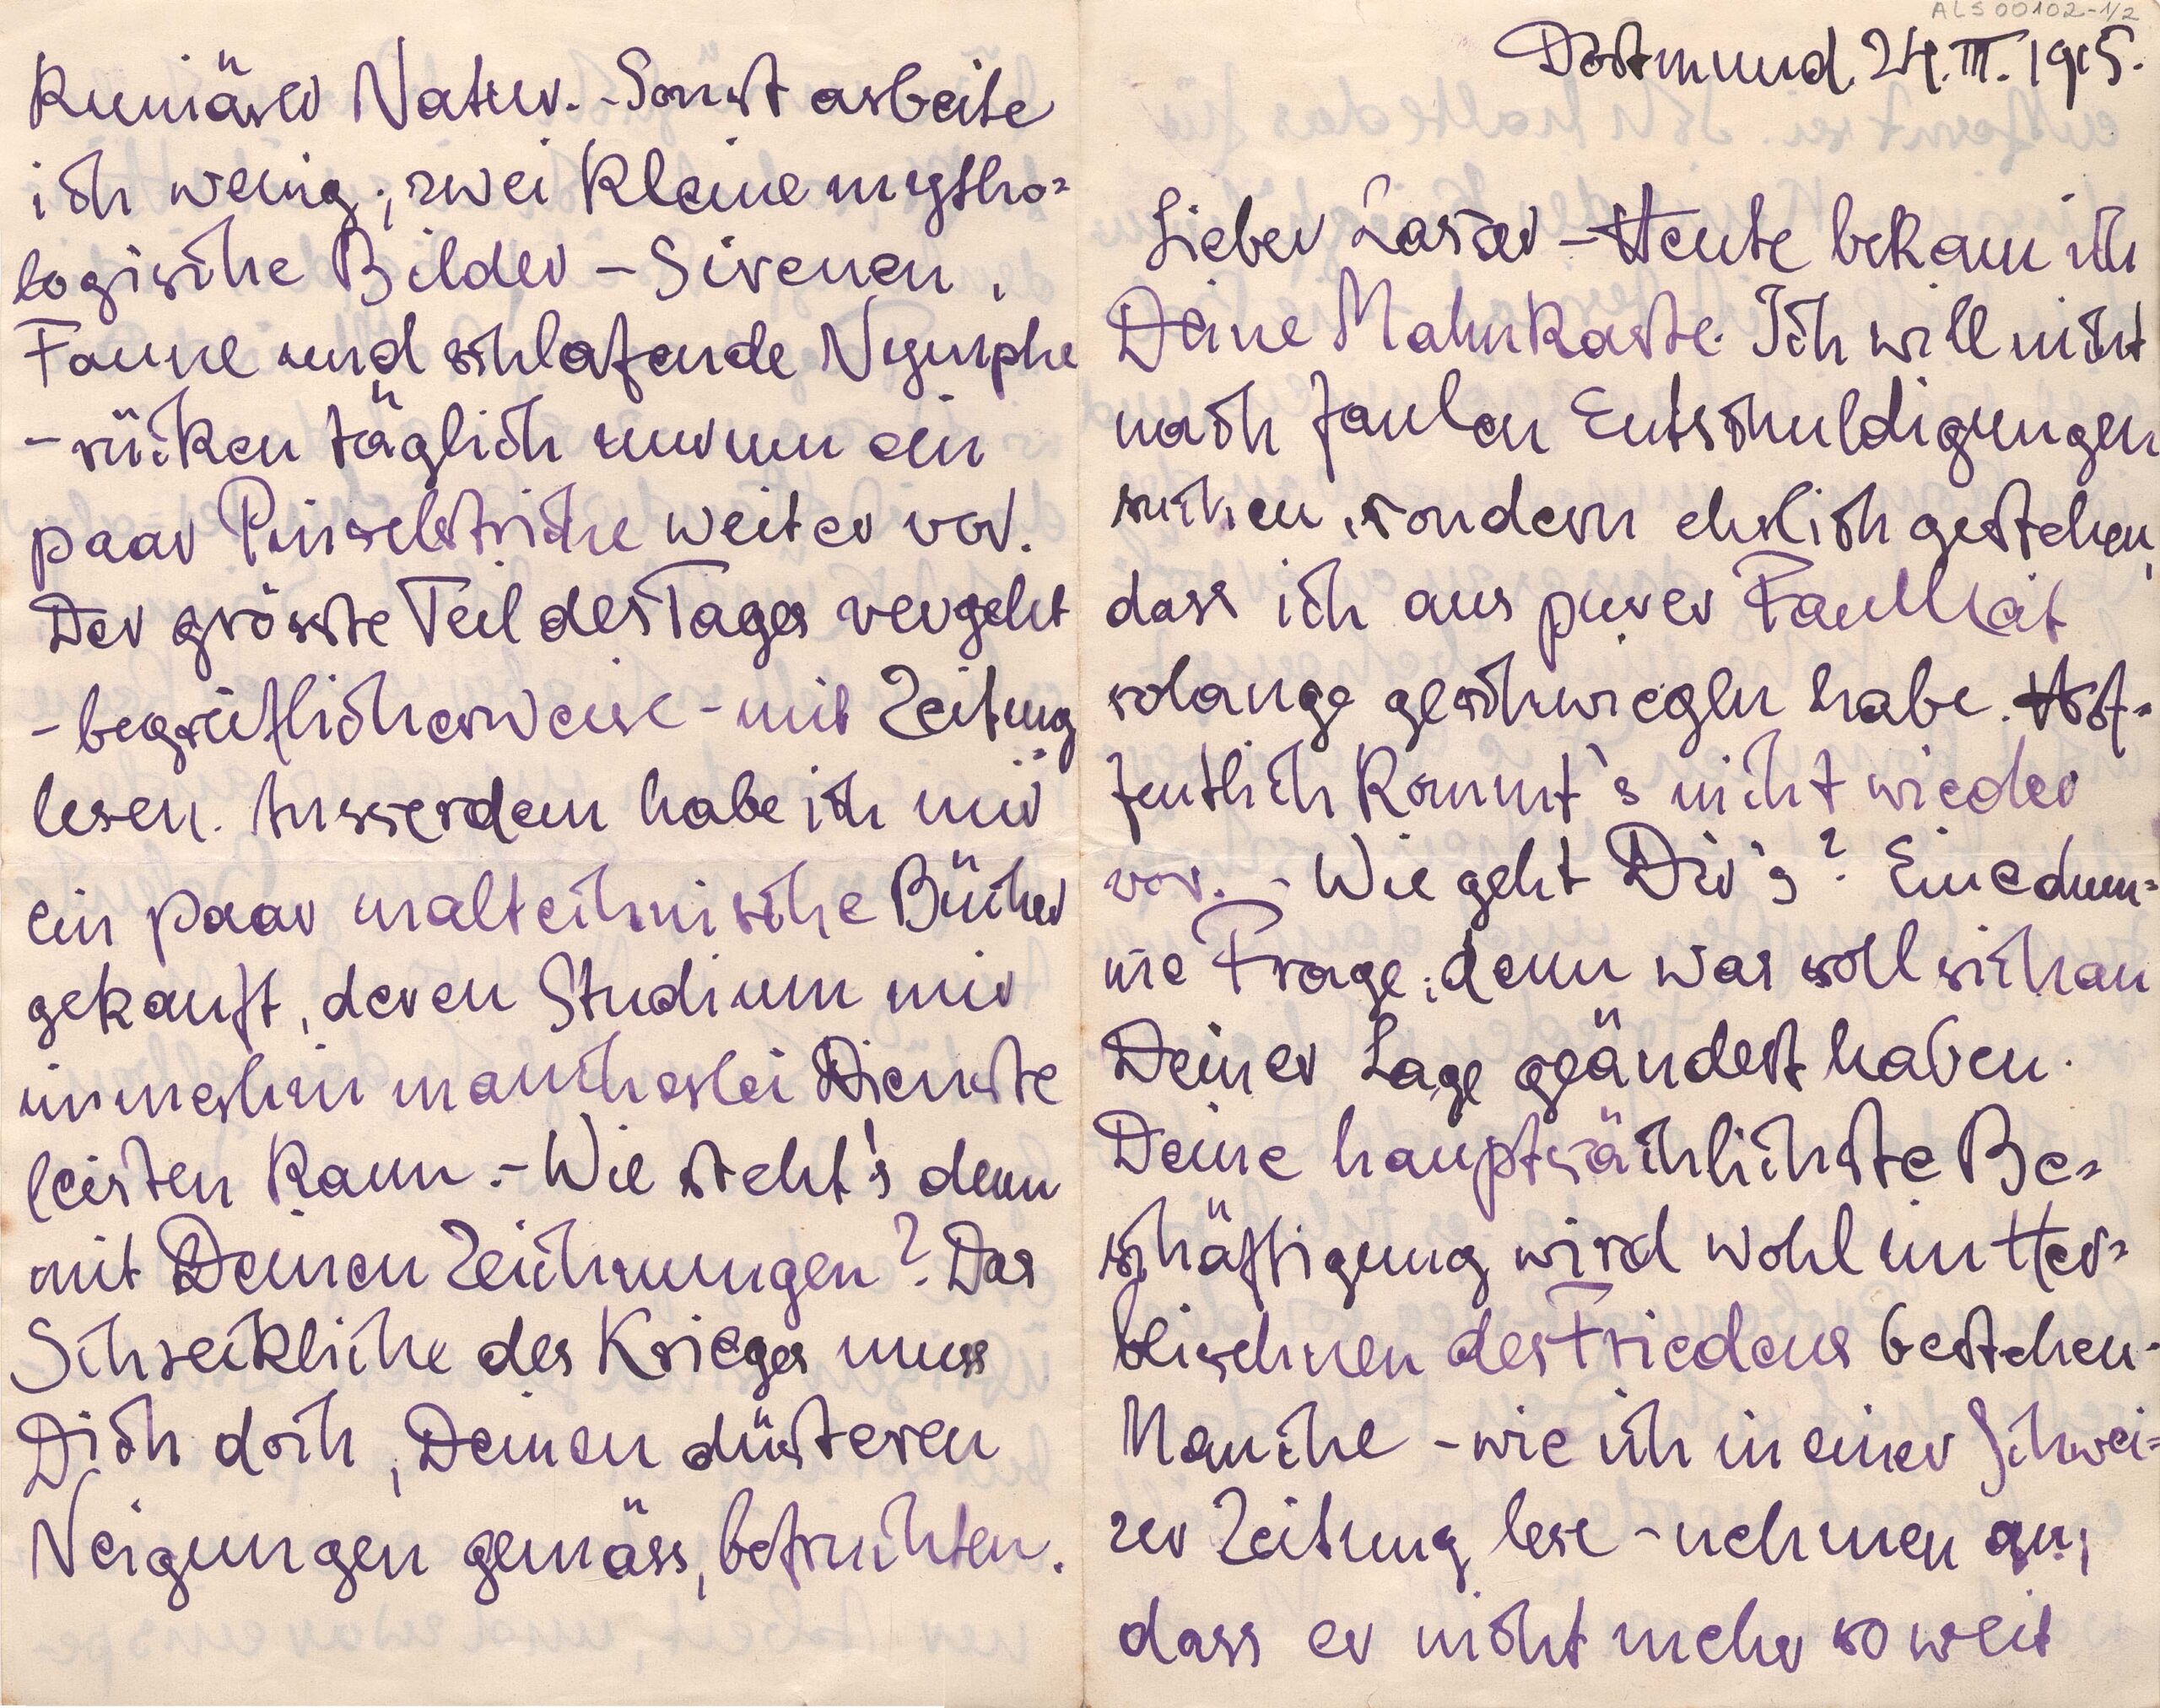 ALS 00102-1/2
Dortmund. 24. III. 1915.
Lieber Lasser – Heute bekam ich
Deine Mahnkarte. Ich will nicht
nach faulen Entschuldigungen
suchen, sondern ehrlich gestehen,
dass ich aus purer Faulheit
solange geschwiegen habe. Hof=
fentlich kommt's nicht wieder
vor. – Wie geht Dir's? Eine dum=
me Frage; denn was soll sich an
Deiner Lage geändert haben.
Deine hauptsächlichste Be=
schäftigung wird wohl im Her=
beisehnen des Friedens bestehen.
Manche – wie ich in einer Schwei=
zer Zeitung lese – nehmen an,
dass er nicht mehr so weit
kuniärer Natur. – Sonst arbeite
ich wenig; zwei kleine mytho=
logische Bilder – Sirenen,
Faune und schlafende Nymphe
– rücken täglich nur um ein
paar Pinselstriche weiter vor.
Der grösste Teil des Tages vergeht
– begreiflicherweise – mit Zeitung
lesen. Ausserdem habe ich mir
ein paar maltechnische Bücher
gekauft, deren Studium mir
immerhin mancherlei Dienste
leisten kann. – Wie steht's denn
mit Deinen Zeichnungen? Das
Schreckliche des Krieges muss
Dich doch, Deinen düsteren
Neigungen gemäss, befruchten.